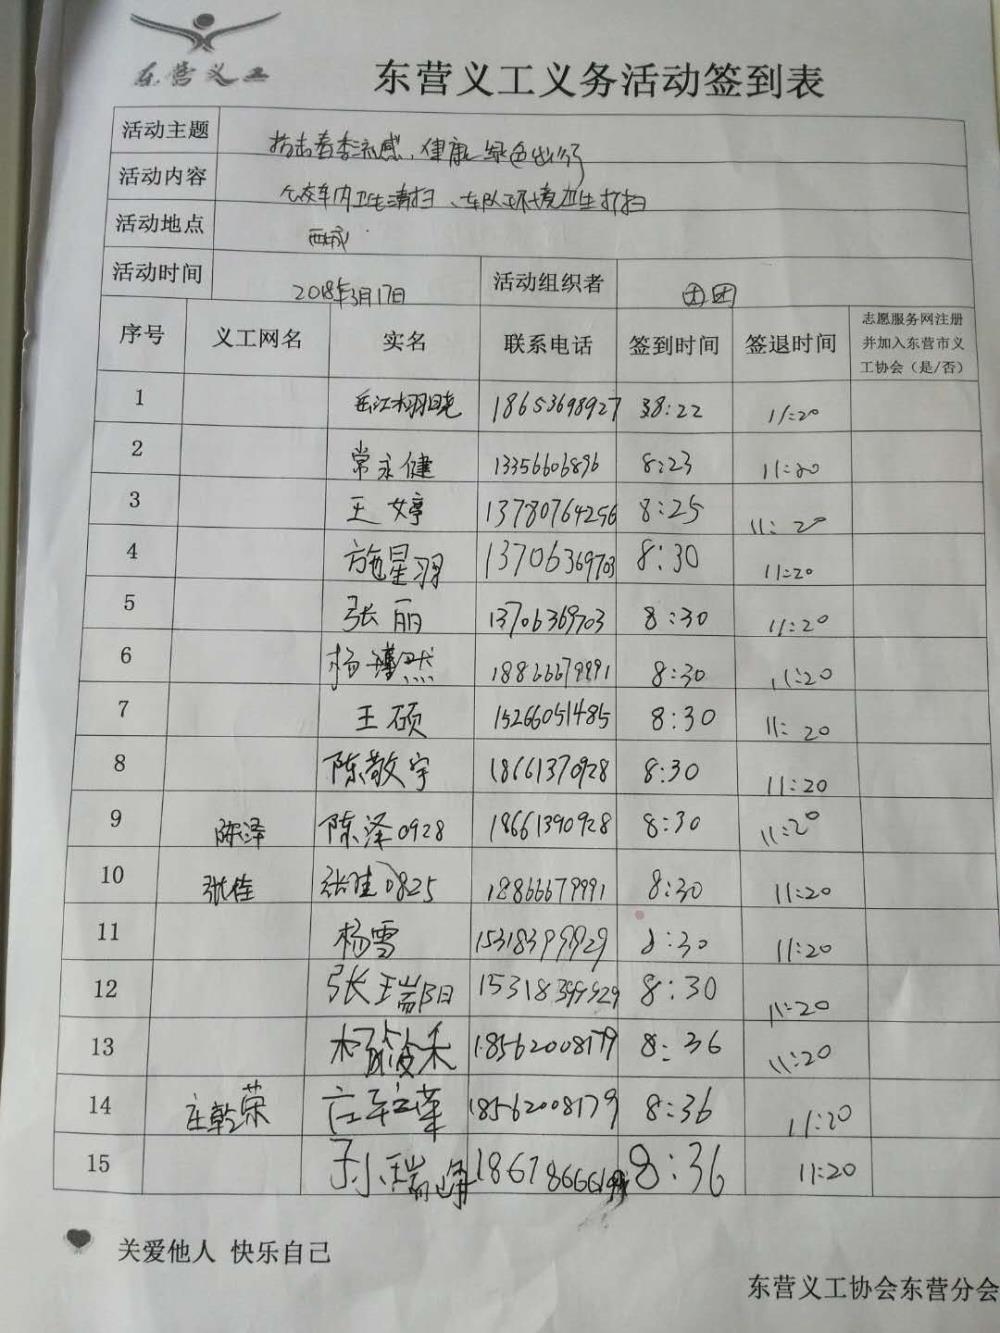 东营义工
东营义工义务活动签到表
活动主题 抗击春季流感，健康绿色出行
活动内容 公交车内卫生清扫、车队环境卫生打扫
活动地点 西城
活动时间 2018年3月17日 活动组织者 团团
序号 义工网名 实名 联系电话 签到时间 签退时间 志愿服务网注册
并加入东营市义
工协会（是/否）
1 18653698927 8:22 11:20
2 常永健 13356606896 8:23 11:20
3 王婷 13780764256 8:25 11:20
4 施星羽 13706369703 8:30 11:20
5 张丽 13706369703 8:30 11:20
6 杨瑾然 18866679991 8:30 11:20
7 王硕 15266051485 8:30 11:20
8 陈敬宇 18661370928 8:30 11:20
9 陈泽 陈泽0928 18661390928 8:30 11:20
10 张佳 张佳0825 18866679991 8:30 11:20
11 杨雪 15318399929 8:30 11:20
12 张瑞阳 15318399929 8:30 11:20
13 18562008179 8:36 11:20
14 庄乾荣 庄乾荣 18562008179 8:36 11:20
15 孙瑞峰 8:36 11:20
关爱他人 快乐自己
东营义工协会东营分会